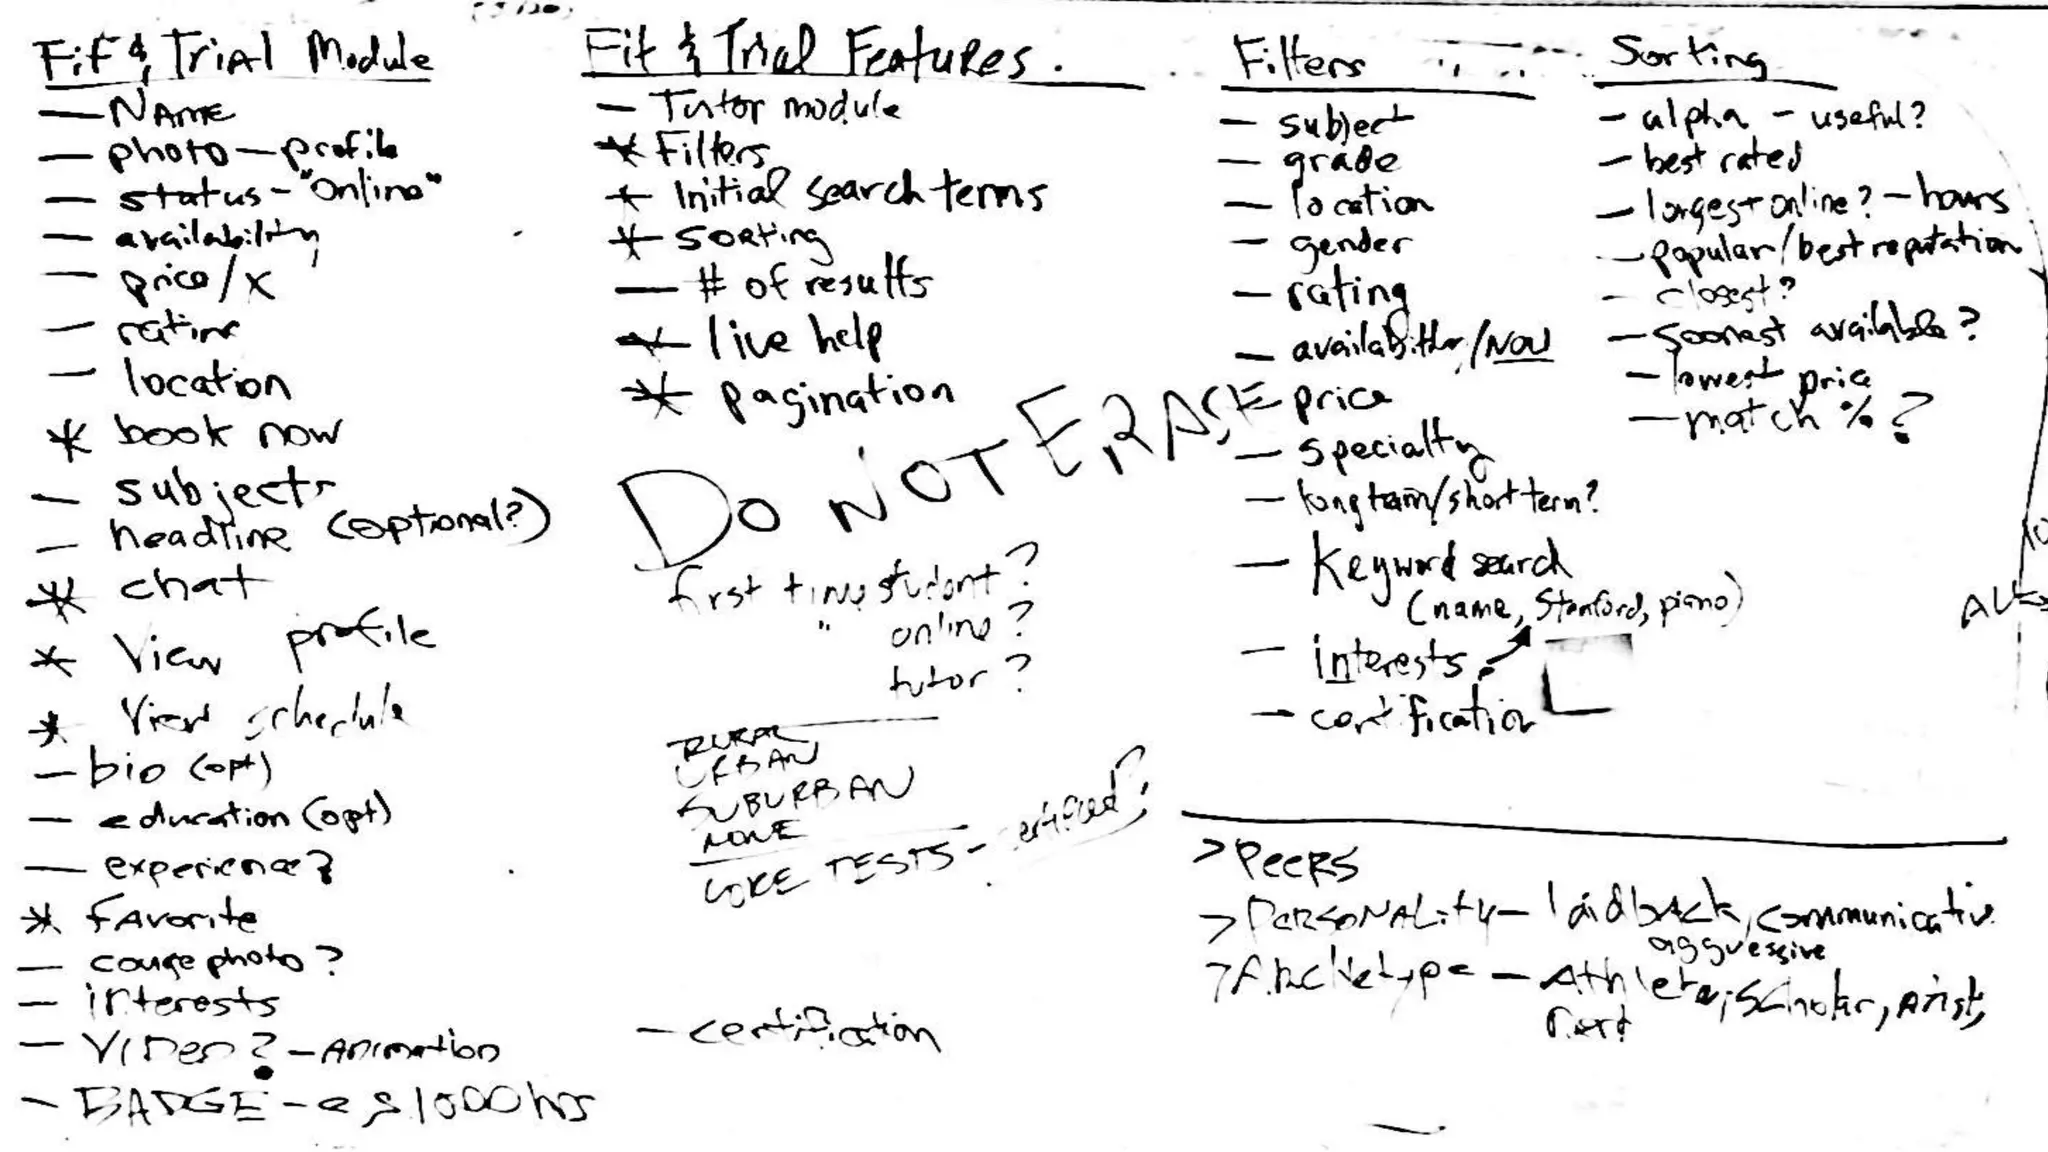 Fit & Trial Module
— NAME
— photo — profile
— status - "online"
— availability
— price/x
— rating
— location
* book now
— subjects
— headline (optional?)
* chat
* View profile
* View schedule
— bio (opt)
— education (opt)
— experience?
* FAvorite
— photo?
— interests
— VIDeo? - Animation
- BADGE - eg 1000 hrs
Fit & Trial Features.
— Tutor module
* Filters
* Initial search terms
* Sorting
— # of results
* live help
* pagination
DO NOT ERASE
first time student?
" online?
tutor?
RURAL
URBAN
SUBURBAN
NONE
CORE TESTS - certified?
— certification
Filters
— subject
— grade
— location
— gender
— rating
— availability/NOW
— price
— specialty
— long term/short term?
— Keyword search
(name, Stanford, piano)
— interests
— certification
Sorting
— alpha - useful?
— best rated
— longest online? - hours
— popular/best reputation
— closest?
— soonest available?
— lowest price
— match %?
> Peers
> PersonALity - laidbACk, communicative
aggressive
> Archetype - Athlete, Scholar, Artist,
Nerd